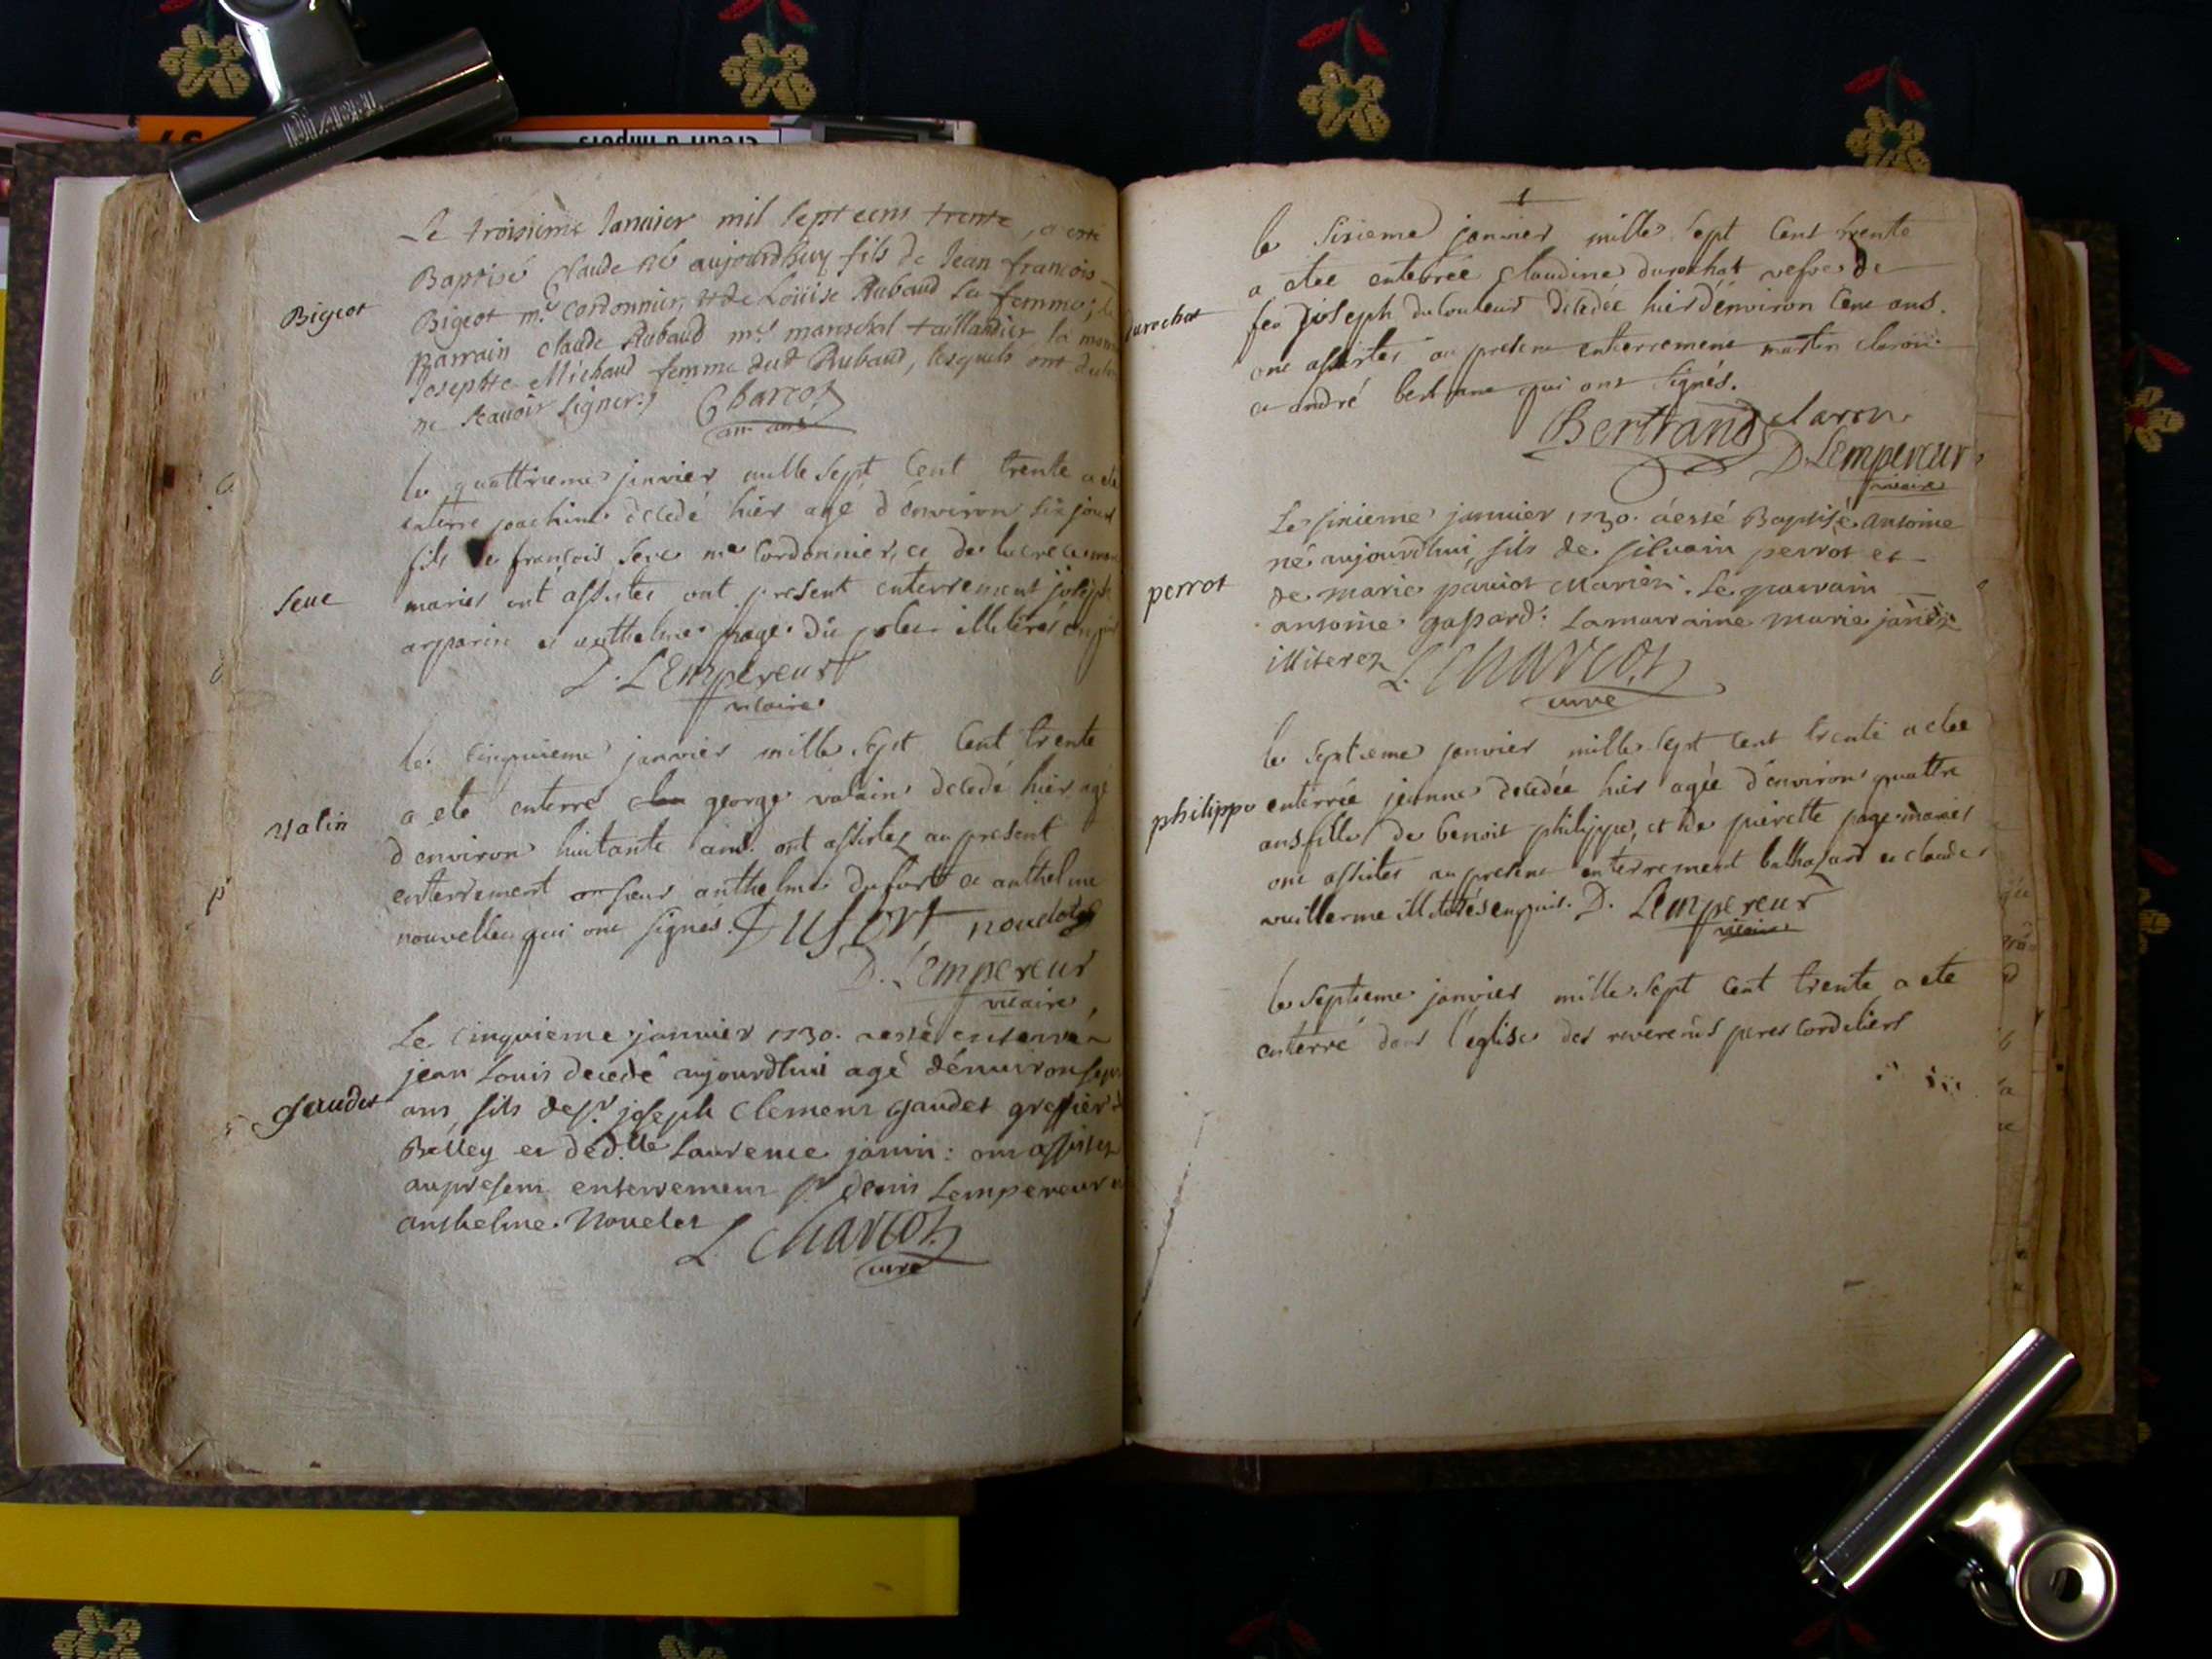 Le troisieme Janvier mil sept cens trente, a esté
Baptisé Claude né aujourdhuy fils de Jean francois
Bigeot
Bigeot mre Cordonnier, et de Loüise Rubaud sa femme;
parrain claude Rubaud mre mareschal taillandier la
Josephte Michaud femme dudt Rubaud, lesquels ont
ne scavoir signer.) Charcot
le quattrieme janvier mille sept Cent trente a ete
enterre joachim decedé hier agé d'environ six jours
fils de françois Seve me Cordonnier, et de
Seve
maries ont assistes au present enterrement joseph
et anthelme page du illiterés
D. LEmpereur
vicaire
le cinquieme janvier mille sept Cent trente
a ete enterré george valin decedé hier agé
Valin
d'environ huitante ans. ont assistez au present
enterrement sieur anthelme Dufort et anthelme
nouvellet qui ont signés. Dufort noudet
D. Lempereur
vicaire
Le cinquieme janvier 1730. a esté enterré
jean Louis decedé aujourdhui agé d'environ sept
Gaudet
ans, fils de sr. joseph Clement gaudet greffier
Belley et de d.lle Laurence janin: ont assistez
au present enterrement sr denis Lempereur
anthelme Nouelet L. Charcot
curé
le sixieme janvier mille sept Cent trente
a etee enterrée claudine durochat vefve de
durochat
feu joseph ducouleur decedée hier d'environ Cent ans.
ont assistes au present enterrement martin claron
et andré bertrand qui ont signés.
Bertrand claron
D. LEmpereur
vicaire
Le sixieme janvier 1730. a esté Baptisé antoine
né aujourdhui, fils de silvain perrot et
perrot
de marie paviot Mariés. Le parrain
antoine gaspard: La marraine marie
illiterez L. Charcot
curé
le septieme janvier mille sept cent trente a etee
philippe
enterrée jeanne decedée hier agée d'environ quattre
ans fille de benoit philippe, et de pierette page maries
ont assistes au present enterrement balthazard et claude
vuillerme illiterés enquis. D. Lempereur
vicaire
le septieme janvier mille sept cent trente a ete
enterré dans l'eglise des reverends peres Cordeliers